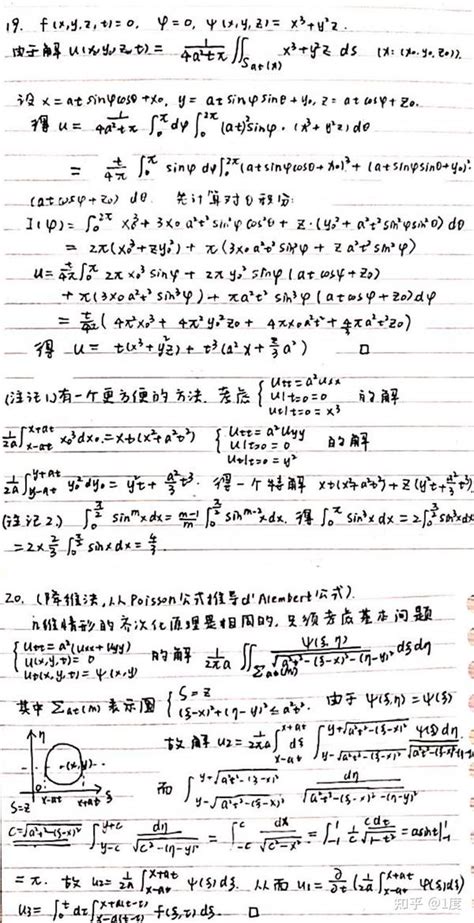 19. f(x,y,z,t)=0, φ=0, ψ(x,y,z)= x³+y²z.
由于解 u(x,y,z,t) = 1/(4a²tπ) ∬_{S_at(x)} x³+y²z ds (x: (x₀,y₀,z₀)).
设 x=at sinφcosθ+x₀, y=at sinφsinθ+y₀, z=at cosφ+z₀.
得 u = 1/(4a²tπ) ∫₀^π dφ ∫₀^{2π} (at)² sinφ·(x³+y²z) dθ
= t/(4π) ∫₀^π sinφ dφ ∫₀^{2π} (at sinφcosθ+x₀)³ + (at sinφ sinθ+y₀)²·
(at cosφ+z₀) dθ. 先计算对θ积分:
I(φ) = ∫₀^{2π} x₀³+3x₀a²t² sin²φ cos²θ + z·(y₀²+a²t² sin²φ sin²θ) dθ
= 2π(x₀³+zy₀²) + π(3x₀a²t² sin²φ + z a²t² sin²φ)
u = t/(4π) ∫₀^π 2πx₀³ sinφ + 2πy₀² sinφ(at cosφ+z₀)
+ π(3x₀a²t² sin³φ) + πa²t² sin³φ(at cosφ+z₀) dφ
= t/(4π) (4πx₀³ + 4πy₀²z₀ + 4πx₀a²t² + 4/3 πa²t²z₀)
得 u = t(x³+y²z) + t³(a²x + z/3 a²) □
(注记1) 有一个更方便的方法. 考虑 { u_tt=a²u_xx u|t=0=0 u_t|t=0=x³ 的解
1/(2a) ∫_{x-at}^{x+at} x₀³dx₀ = xt(x²+a²t²) { u_tt=a²u_yy u|t=0=0 u_t|t=0=y² 的解
1/(2a) ∫_{y-at}^{y+at} y₀²dy₀ = y²t + a²/3 t³. 得一个特解 xt(x²+a²t²)+z(y²t+a²/3 t³)
(注记2) ∫₀^{π/2} sin^m x dx = (m-1)/m ∫₀^{π/2} sin^{m-2} x dx. 得 ∫₀^π sin³x dx = 2∫₀^{π/2} sin³x dx
= 2×2/3 ∫₀^{π/2} sinx dx = 4/3.
20. (降维法, 从Poisson公式推导d'Alembert公式).
n维情形的齐次化原理是相同的, 只须考虑基本问题
{ u_tt=a²(u_xx+u_yy) u(x,y,t)=0 u_t(x,y,t)=ψ(x,y) 的解 1/(2πa) ∬_{Σat(m)} ψ(ξ,η)/√(a²t²-(ξ-x)²-(η-y)²) dξdη
其中 Σat(m) 表示圆 { ζ=z (ξ-x)²+(η-y)²≤a²t². 由于 ψ(ξ,η)=ψ(ξ)
故解 u₂ = 1/(2πa) ∫_{x-at}^{x+at} dξ ∫_{y-√(a²t²-(ξ-x)²)}^{y+√(a²t²-(ξ-x)²)} ψ(ξ)dη/√(a²t²-(ξ-x)²-(η-y)²)
η (x,y) ζ=z 0 x-at x+at ξ
而 ∫_{y-√(a²t²-(ξ-x)²)}^{y+√(a²t²-(ξ-x)²)} dη/√(a²t²-(ξ-x)²-(η-y)²)
C=√(a²t²-(ξ-x)²) ∫_{y-c}^{y+c} dη/√(c²-(η-y)²) = ∫_{-c}^{c} dx/√(c²-x²) = ∫_{-1}^{1} 1/c · cdt/√(1-t²) = asint|_{-1}^{1}
= π. 故 u₂ = 1/(2a) ∫_{x-at}^{x+at} ψ(ξ) dξ. 从而 u₁ = ∂/∂t (1/(2a) ∫_{x-at}^{x+at} φ(ξ)dξ)
u₃ = ∫₀^t dτ ∫_{x-a(t-τ)}^{x+a(t-τ)} f(ξ,τ)dξ. □
知乎 @1度